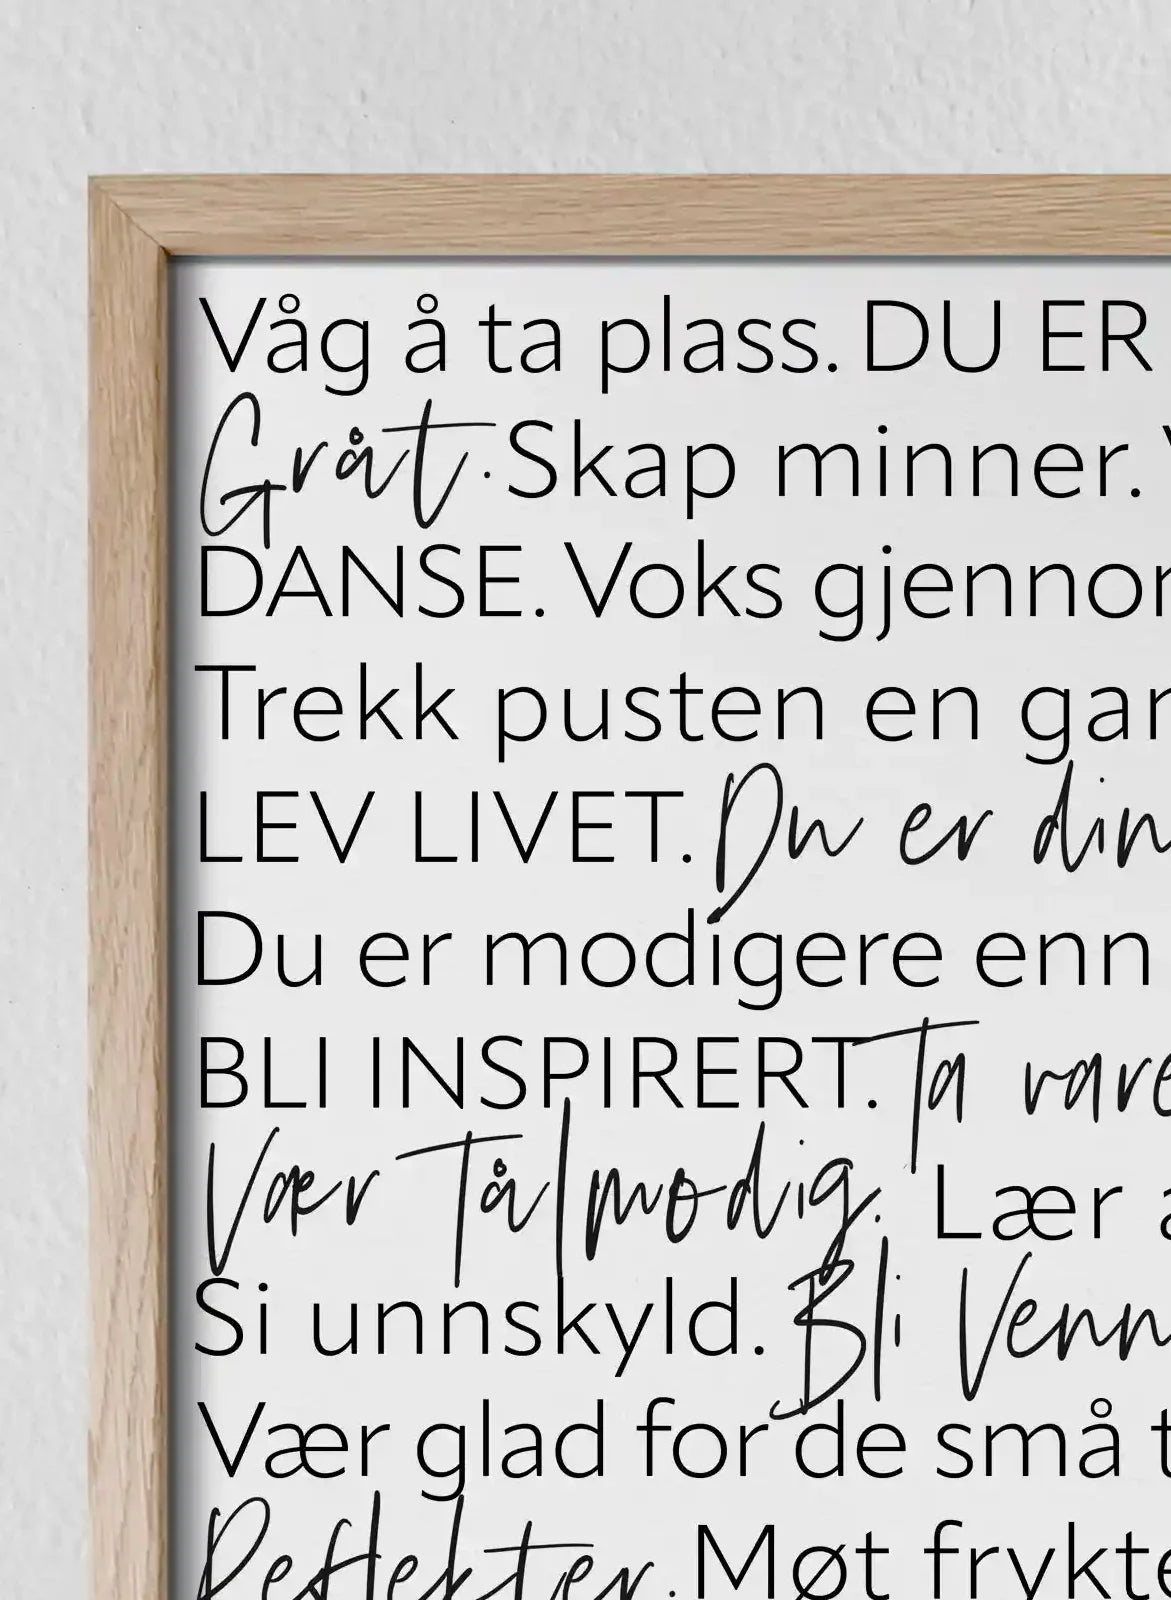 Våg å ta plass. DU ER
Gråt. Skap minner.
DANSE. Voks gjennom
Trekk pusten en gan
LEV LIVET. Du er din
Du er modigere enn
BLI INSPIRERT. Ta vare
Vær tålmodig. Lær a
Si unnskyld. Bli Venn
Vær glad for de små t
Reflekter. Møt frykte